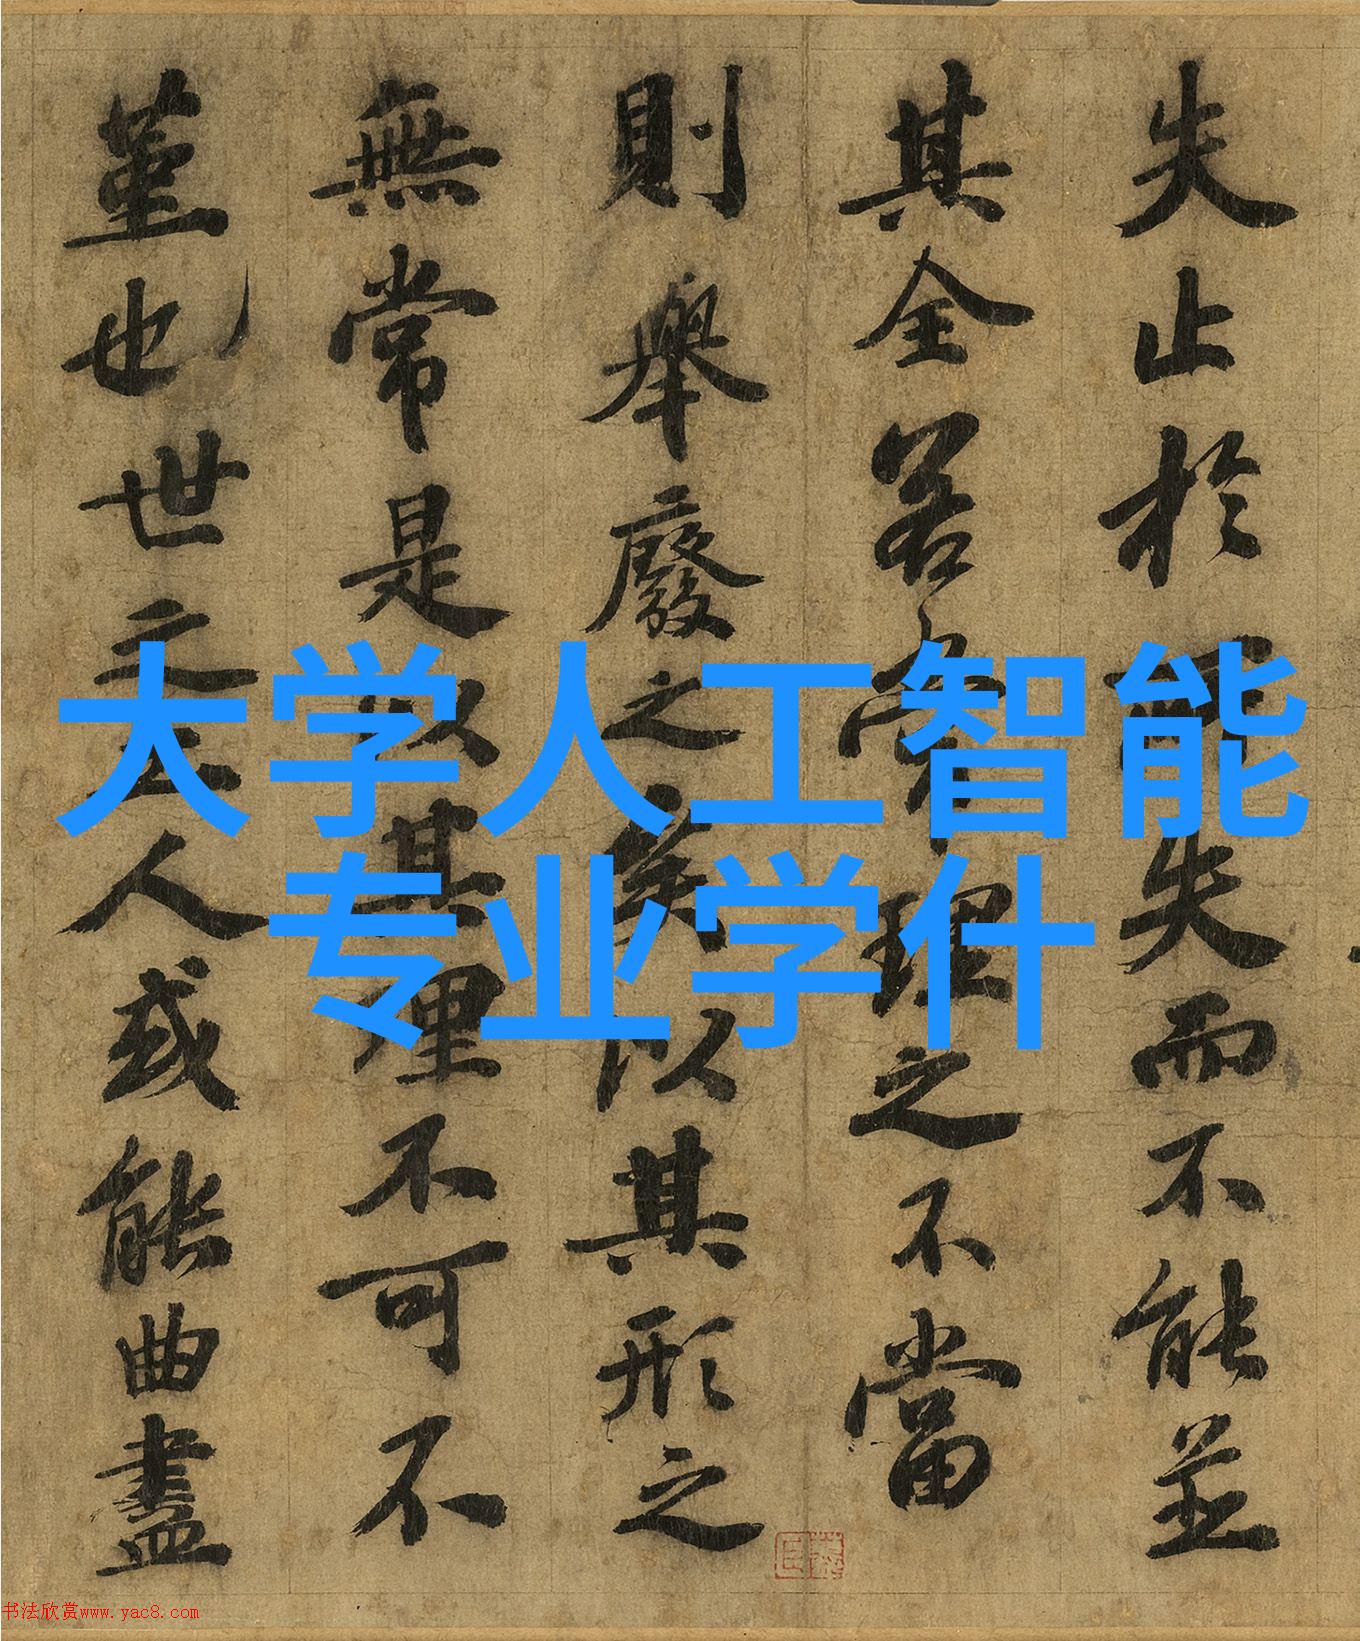 失止於所失而不能並
其全若常理之不當
則舉廢之矣以其形之
無常是以其理不可不
堇也世之工人或能曲盡
大学人工智能
专业学什
书法欣赏www.yac8.com